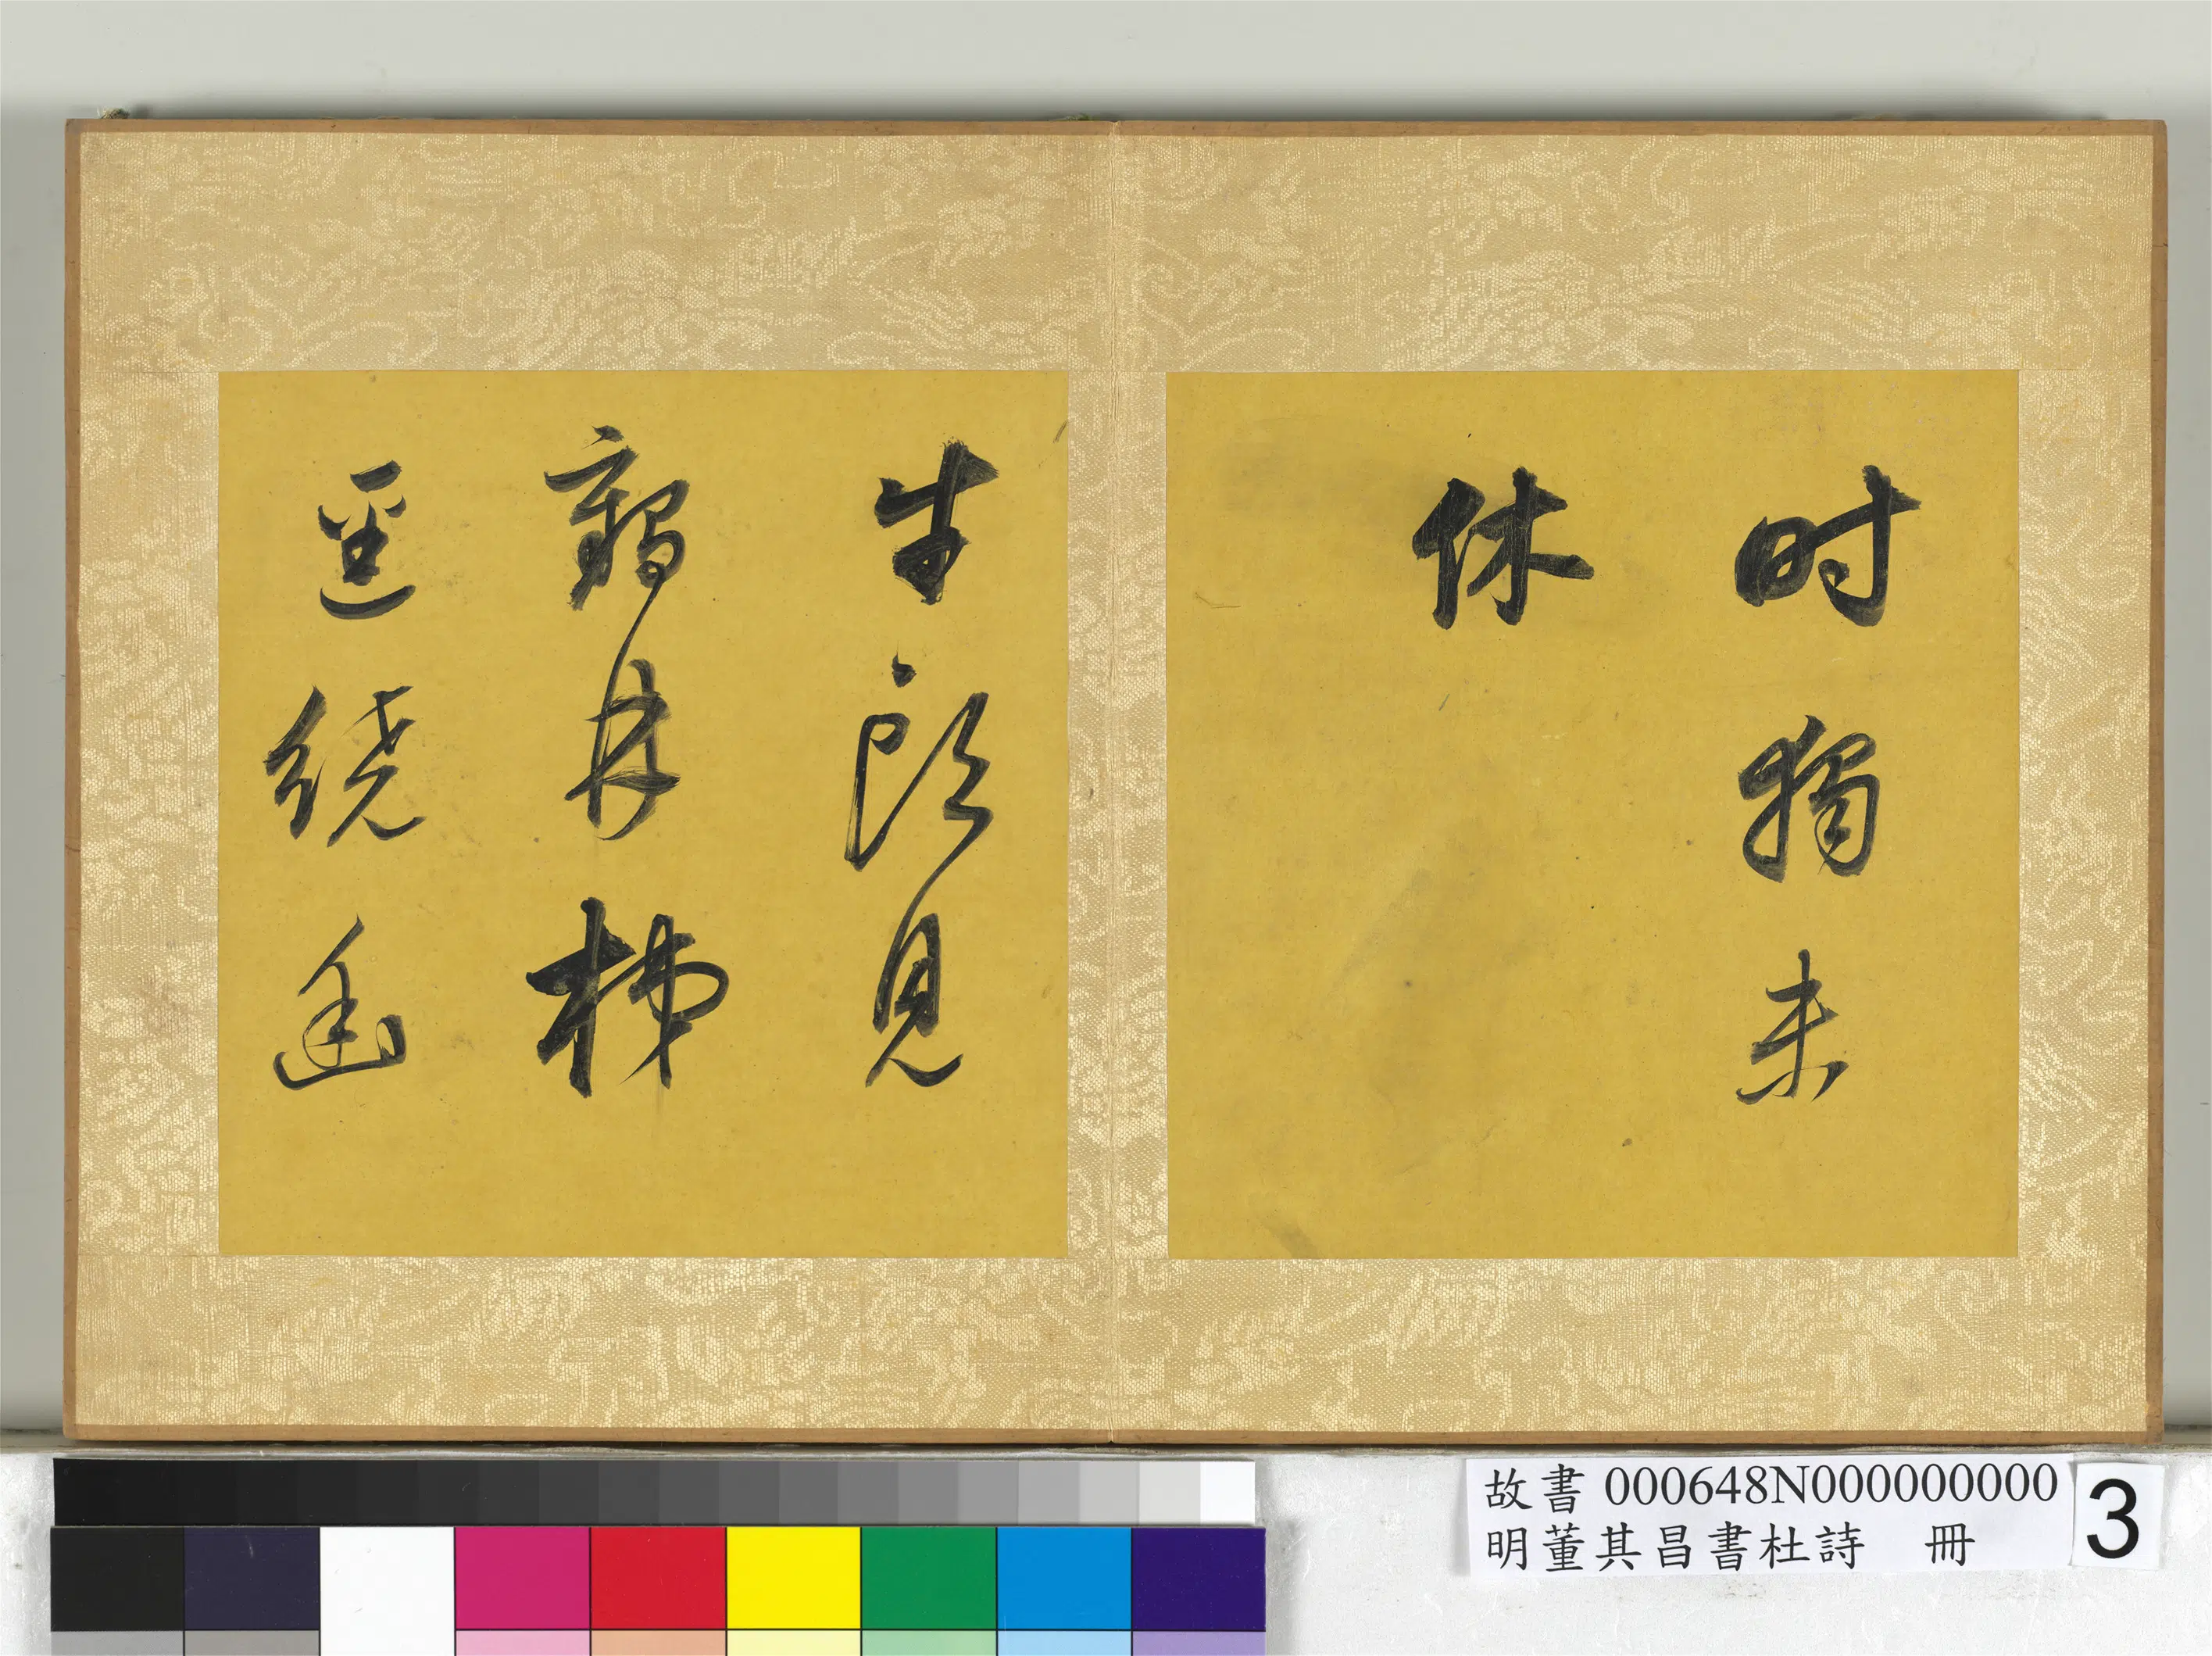 時獨未
休
牛頭見
鶴林梯
逕繞幽
故書 000648N000000000
明董其昌書杜詩 冊
3